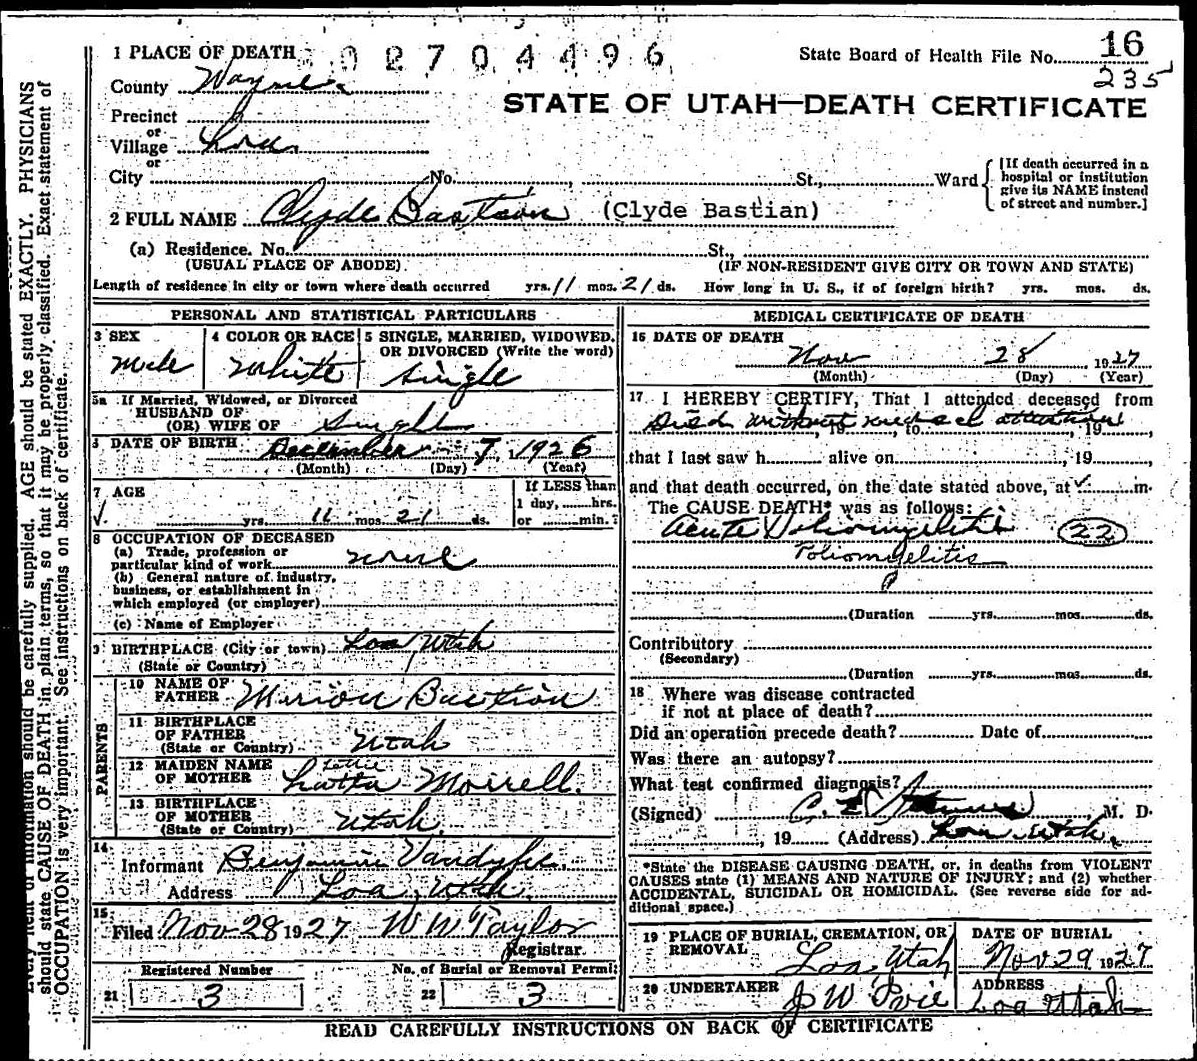 1 PLACE OF DEATH
02704496
State Board of Health File No. 16
235
County Wayne
STATE OF UTAH—DEATH CERTIFICATE
Precinct
or
Village Loa
or
City No. , St., Ward
[If death occurred in a hospital or institution give its NAME instead of street and number.]
2 FULL NAME Clyde Bastian (Clyde Bastian)
(a) Residence. No. St.,
(USUAL PLACE OF ABODE) (IF NON-RESIDENT GIVE CITY OR TOWN AND STATE)
Length of residence in city or town where death occurred yrs. 11 mos. 21 ds. How long in U. S., if of foreign birth? yrs. mos. ds.
PERSONAL AND STATISTICAL PARTICULARS
3 SEX
Male
4 COLOR OR RACE
White
5 SINGLE, MARRIED, WIDOWED, OR DIVORCED (Write the word)
Single
5a If Married, Widowed, or Divorced
HUSBAND OF
(OR) WIFE OF Single
6 DATE OF BIRTH December 7, 1926
(Month) (Day) (Year)
7 AGE
yrs. 11 mos. 21 ds.
If LESS than
1 day, hrs.
or min.?
8 OCCUPATION OF DECEASED
(a) Trade, profession or
particular kind of work none
(b) General nature of industry,
business, or establishment in
which employed (or employer)
(c) Name of Employer
9 BIRTHPLACE (City or town) Loa Utah
(State or Country)
PARENTS
10 NAME OF
FATHER Merion Bastion
11 BIRTHPLACE
OF FATHER
(State or Country) Utah
12 MAIDEN NAME Lettie
OF MOTHER Morrell.
13 BIRTHPLACE
OF MOTHER
(State or Country) Utah.
14
Informant Benjamine Vandyke.
Address Loa, Utah.
15
Filed Nov 28 1927 W W Taylor
Registrar.
Registered Number
21 3
No. of Burial or Removal Permit
22 3
MEDICAL CERTIFICATE OF DEATH
16 DATE OF DEATH
Nov 28 1927
(Month) (Day) (Year)
17 I HEREBY CERTIFY, That I attended deceased from
Died without medical attention , 19 , to , 19 ,
that I last saw h alive on , 19 ,
and that death occurred, on the date stated above, at m.
The CAUSE DEATH* was as follows:
Acute Poliomyelitis (22)
Poliomyelitis
(Duration yrs. mos. ds.
Contributory
(Secondary)
(Duration yrs. mos. ds.
18 Where was disease contracted
if not at place of death?
Did an operation precede death? Date of
Was there an autopsy?
What test confirmed diagnosis?
(Signed) , M. D.
, 19 (Address) Loa, Utah.
*State the DISEASE CAUSING DEATH, or, in deaths from VIOLENT
CAUSES state (1) MEANS AND NATURE OF INJURY; and (2) whether
ACCIDENTAL, SUICIDAL OR HOMICIDAL. (See reverse side for ad-
ditional space.)
19 PLACE OF BURIAL, CREMATION, OR
REMOVAL Loa, Utah
DATE OF BURIAL
Nov 29 1927
20 UNDERTAKER
J W
ADDRESS
Loa Utah
READ CAREFULLY INSTRUCTIONS ON BACK OF CERTIFICATE
information should be carefully supplied. AGE should be stated EXACTLY. PHYSICIANS
should state CAUSE OF DEATH in plain terms, so that it may be properly classified. Exact statement of
OCCUPATION is very important. See instructions on back of certificate.